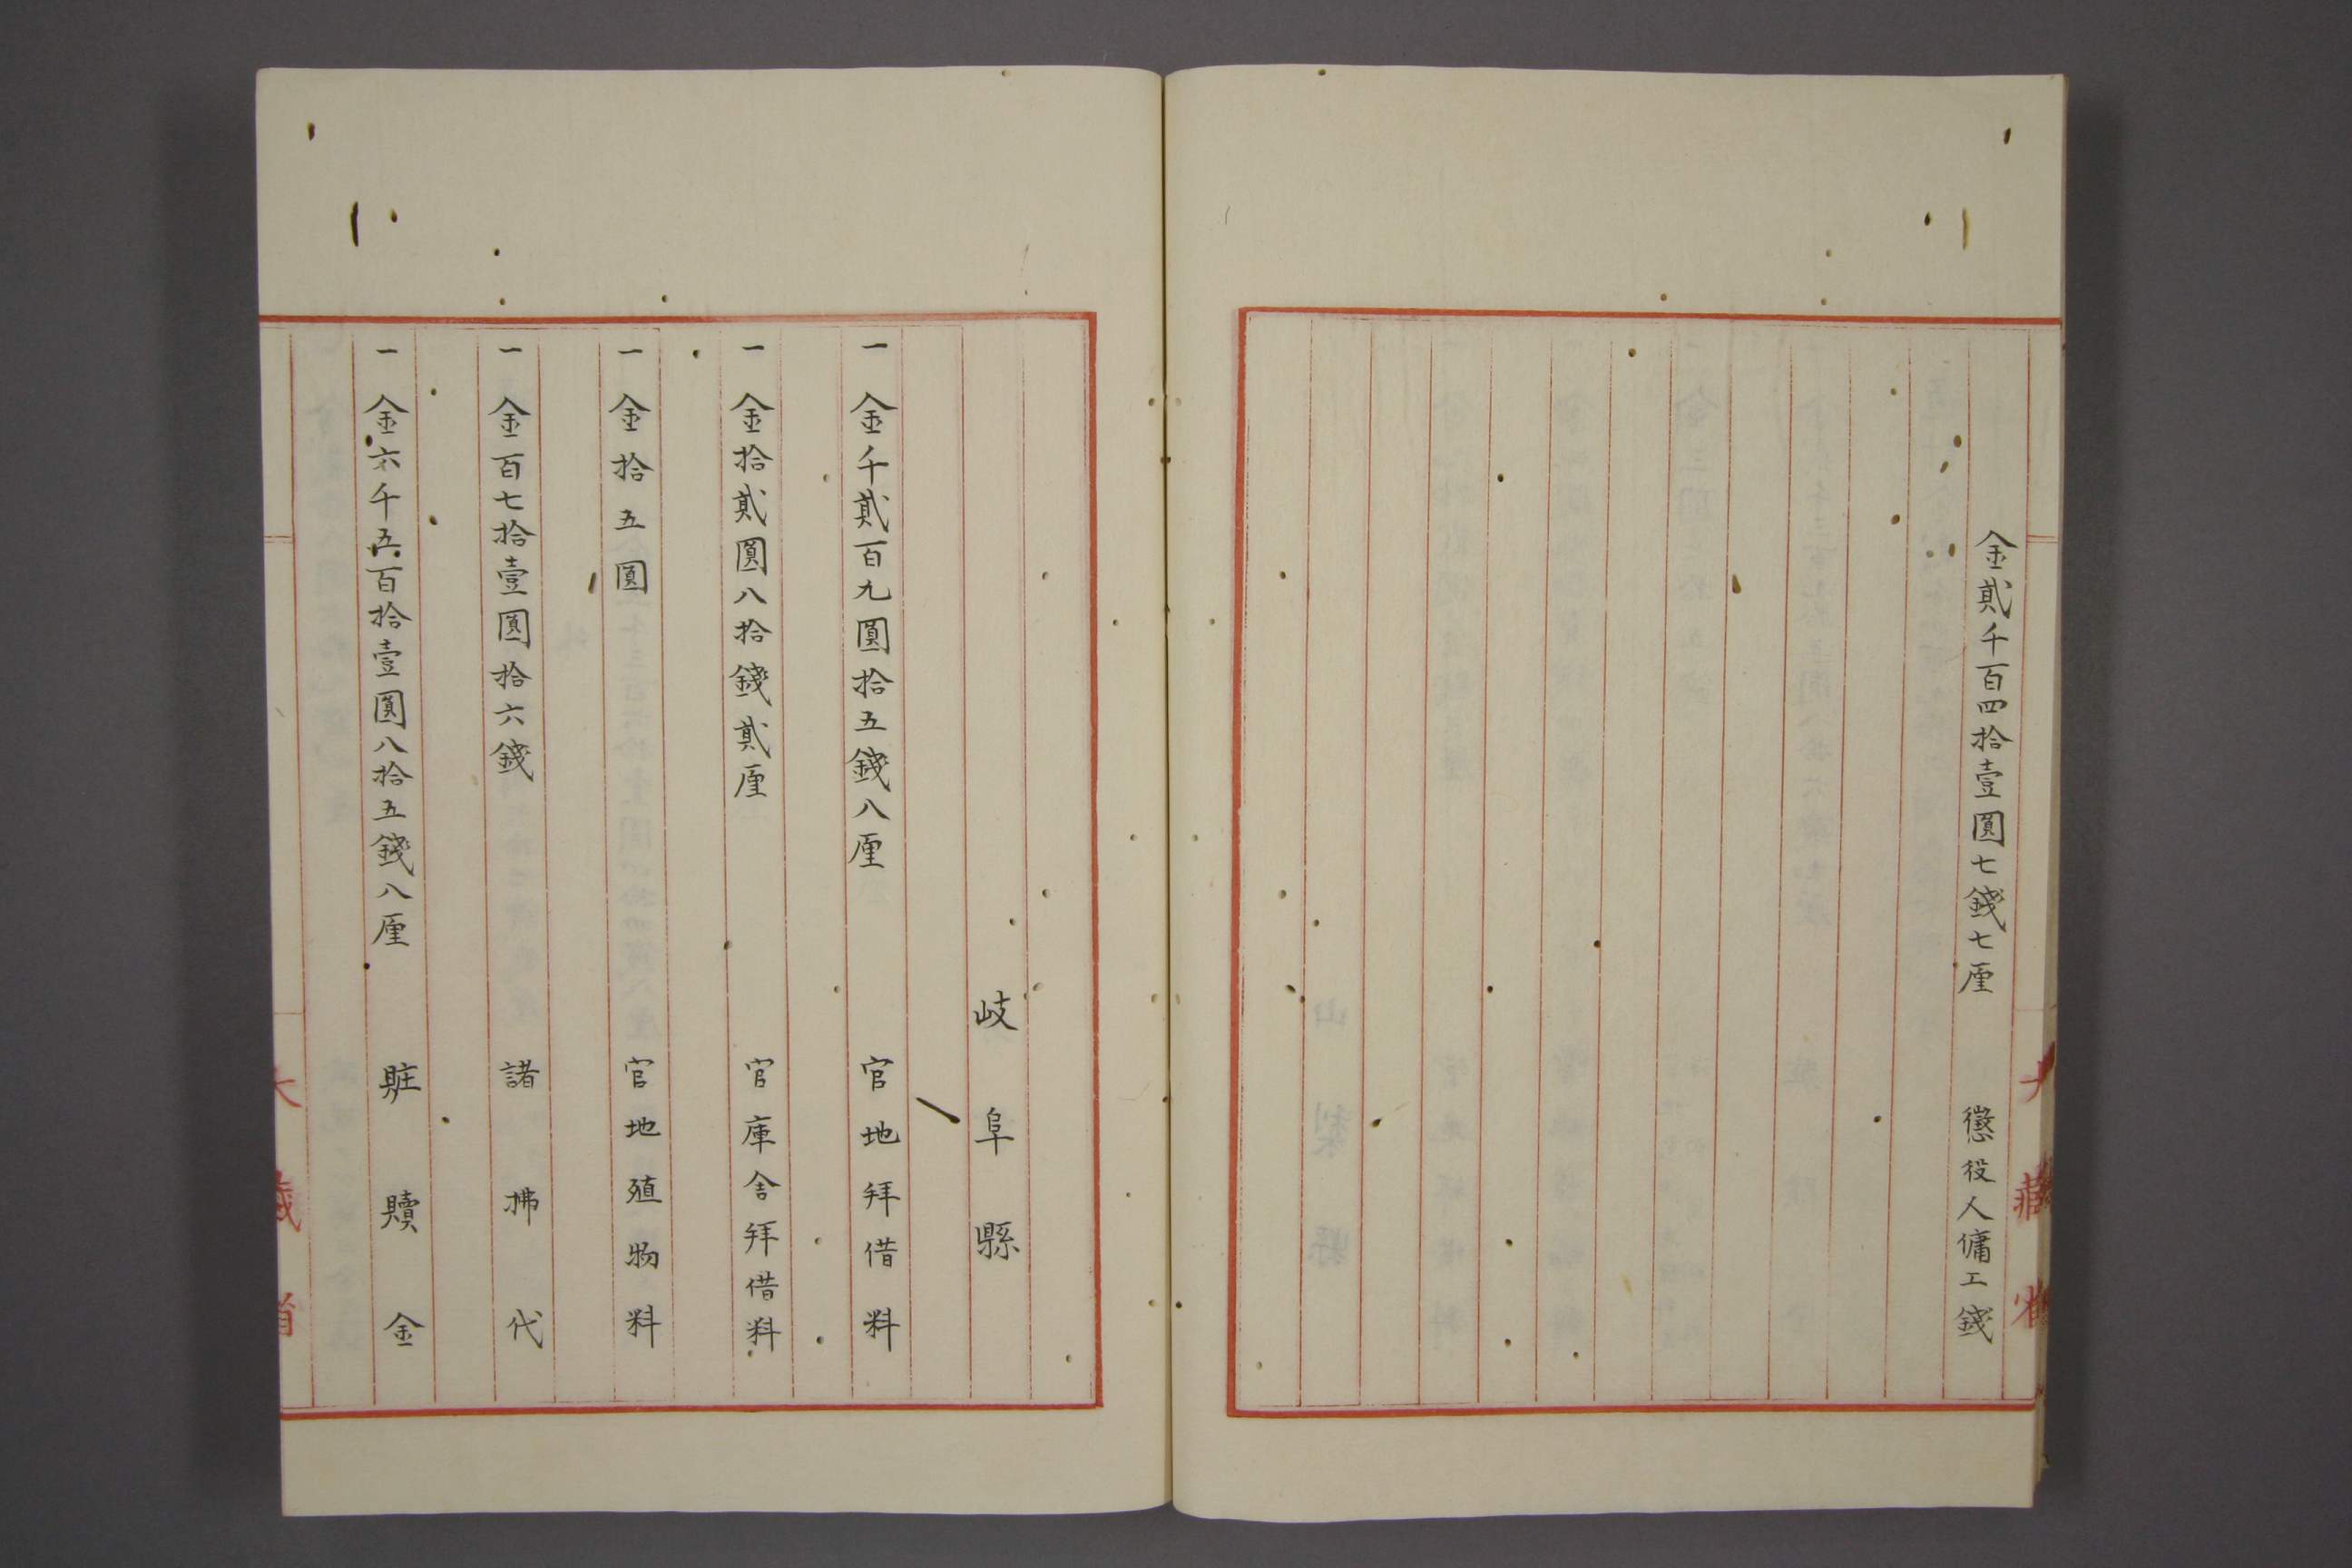 金貳千百四拾壹圓七錢七厘 懲役人傭工錢
大藏省
岐阜縣
一金千貳百九圓拾五錢八厘 官地拜借料
一金拾貳圓八拾錢貳厘 官庫舎拜借料
一金拾五圓 官地殖物料
一金百七拾壹圓拾六錢 諸拂代
一金六千五百拾壹圓八拾五錢八厘 贓贖金
大藏省